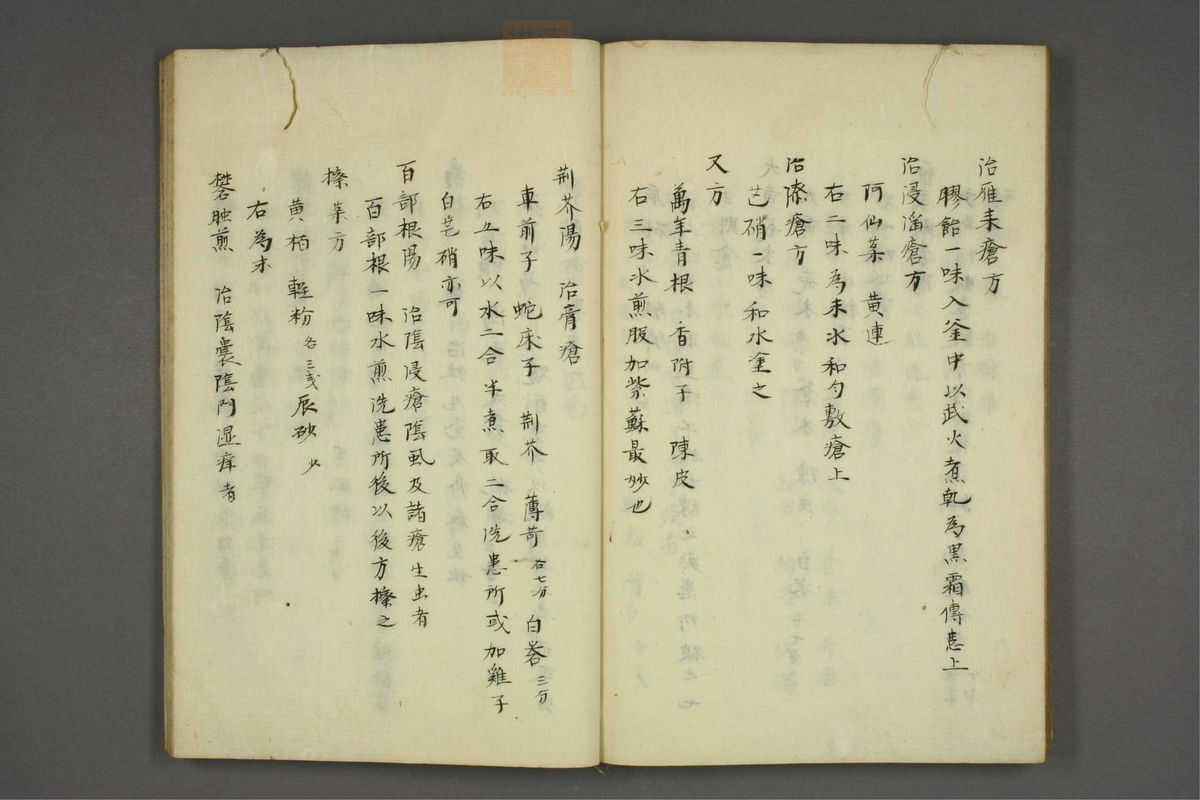 治雁来瘡方
膠飴一味入釜中以武火煮乾為黒霜傅患上
治浸淫瘡方
阿仙藥 黄連
右二味為末水和勻敷瘡上
治漆瘡方
芒硝一味和水塗之
又方
萬年青根 香附子 陳皮
右三味水煎服加紫蘇最妙也
荆芥湯 治瘡
車前子 蛇床子 荆芥 薄荷 各七分 白礬 三分
右五味以水二合半煮取二合洗患所或加雞子
白芒硝亦可
百部根湯 治陰浸瘡陰虱及諸瘡生虫者
百部根一味水煎洗患所後以後方擦之
擦藥方
黄柏 輕粉 各三戔 辰砂 少
右為末
礬 煎 治陰囊陰門湿痒者